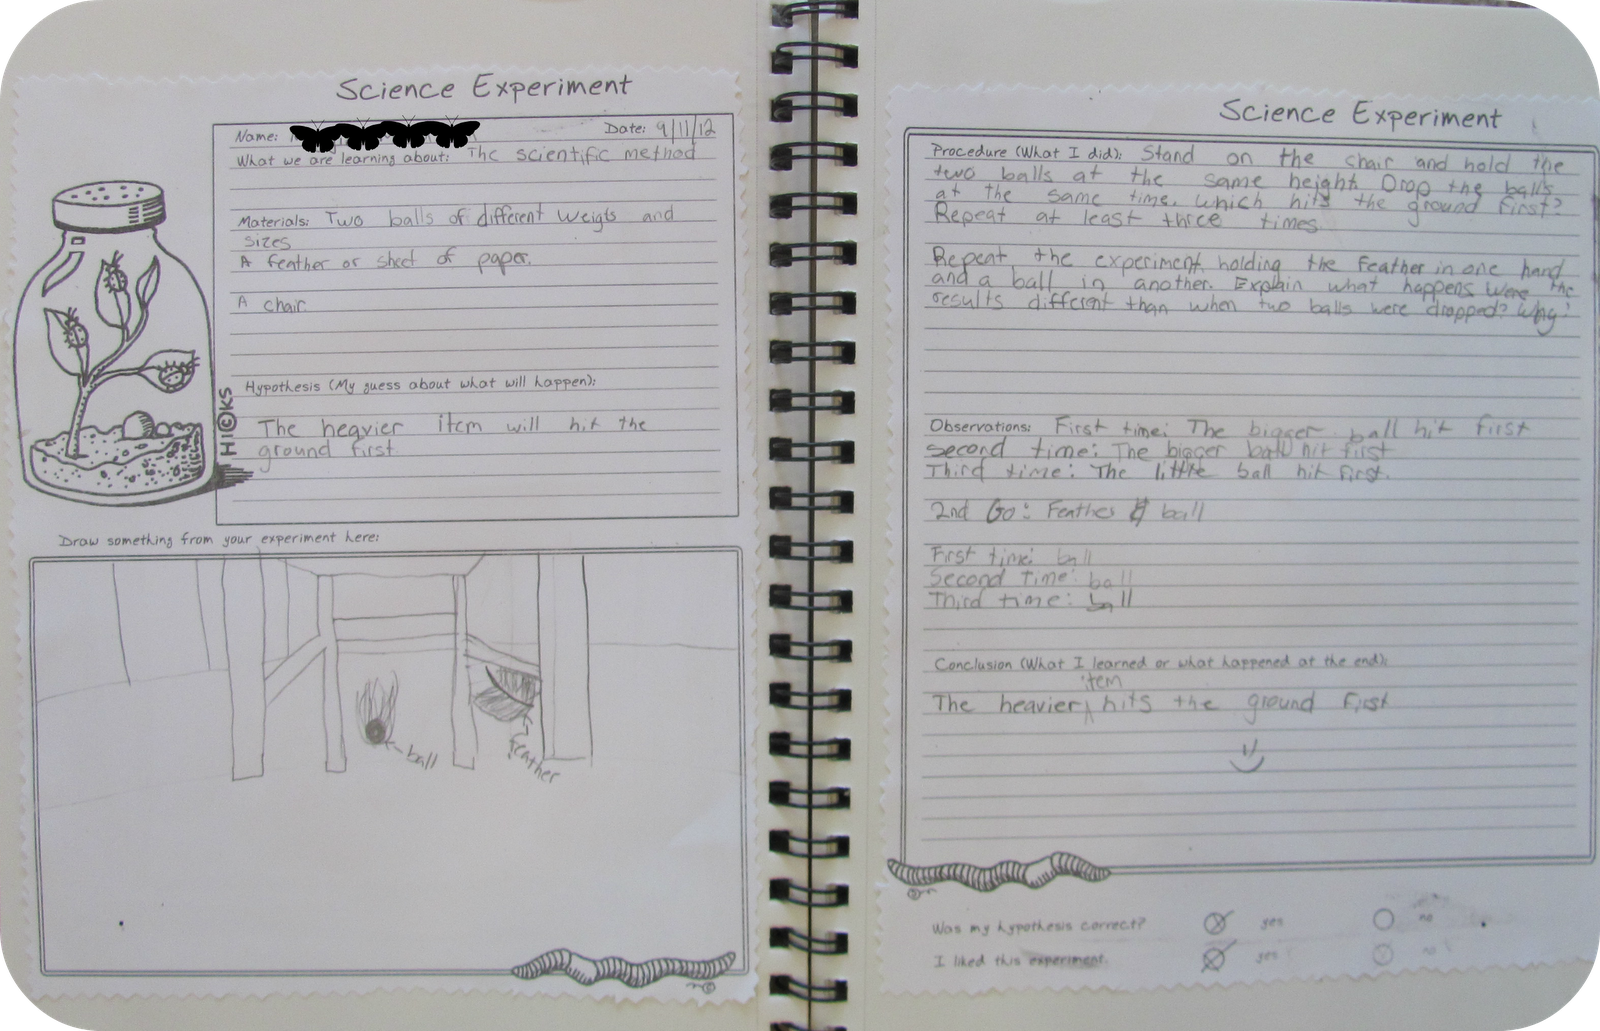 Science Experiment
Name:
Date: 9/11/12
What we are learning about: The scientific method
Materials: Two balls of different weigts and
sizes
A feather or sheet of paper.
A chair
Hypothesis (My guess about what will happen):
The heavier item will hit the
ground first.
HICKS
Draw something from your experiment here:
ball
feather
Science Experiment
Procedure (What I did): Stand on the chair and hold the
two balls at the same height Drop the balls
at the same time. which hits the ground first?
Repeat at least three times.
Repeat the experiment, holding the feather in one hand
and a ball in another. Explain what happens were the
results different than when two balls were dropped? Why?
Observations: First time: The bigger ball hit first
second time: The bigger ball hit first
Third time: The little ball hit first.
2nd Go: Feather & ball
First time: ball
Second time: ball
Third time: ball
Conclusion (What I learned or what happened at the end):
item
The heavier hits the ground first
Was my hypothesis correct? yes no
I liked this experiment. yes no